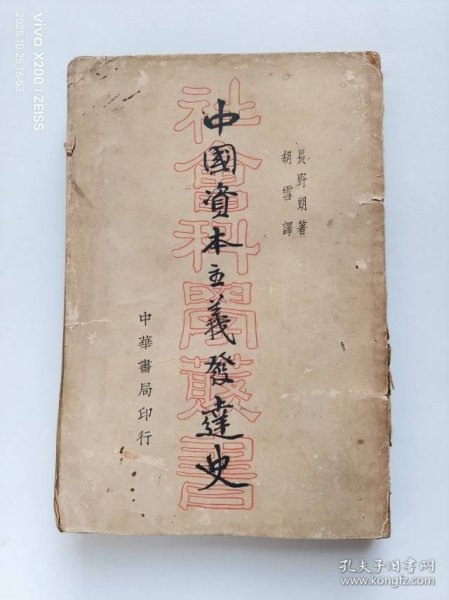 長野朗著
胡雪譯
中國資本主義發達史
社會科學叢書
中華書局印行
vivo X200 | ZEISS
2025.10.25 16:53
孔夫子旧书网
www.kongfz.com